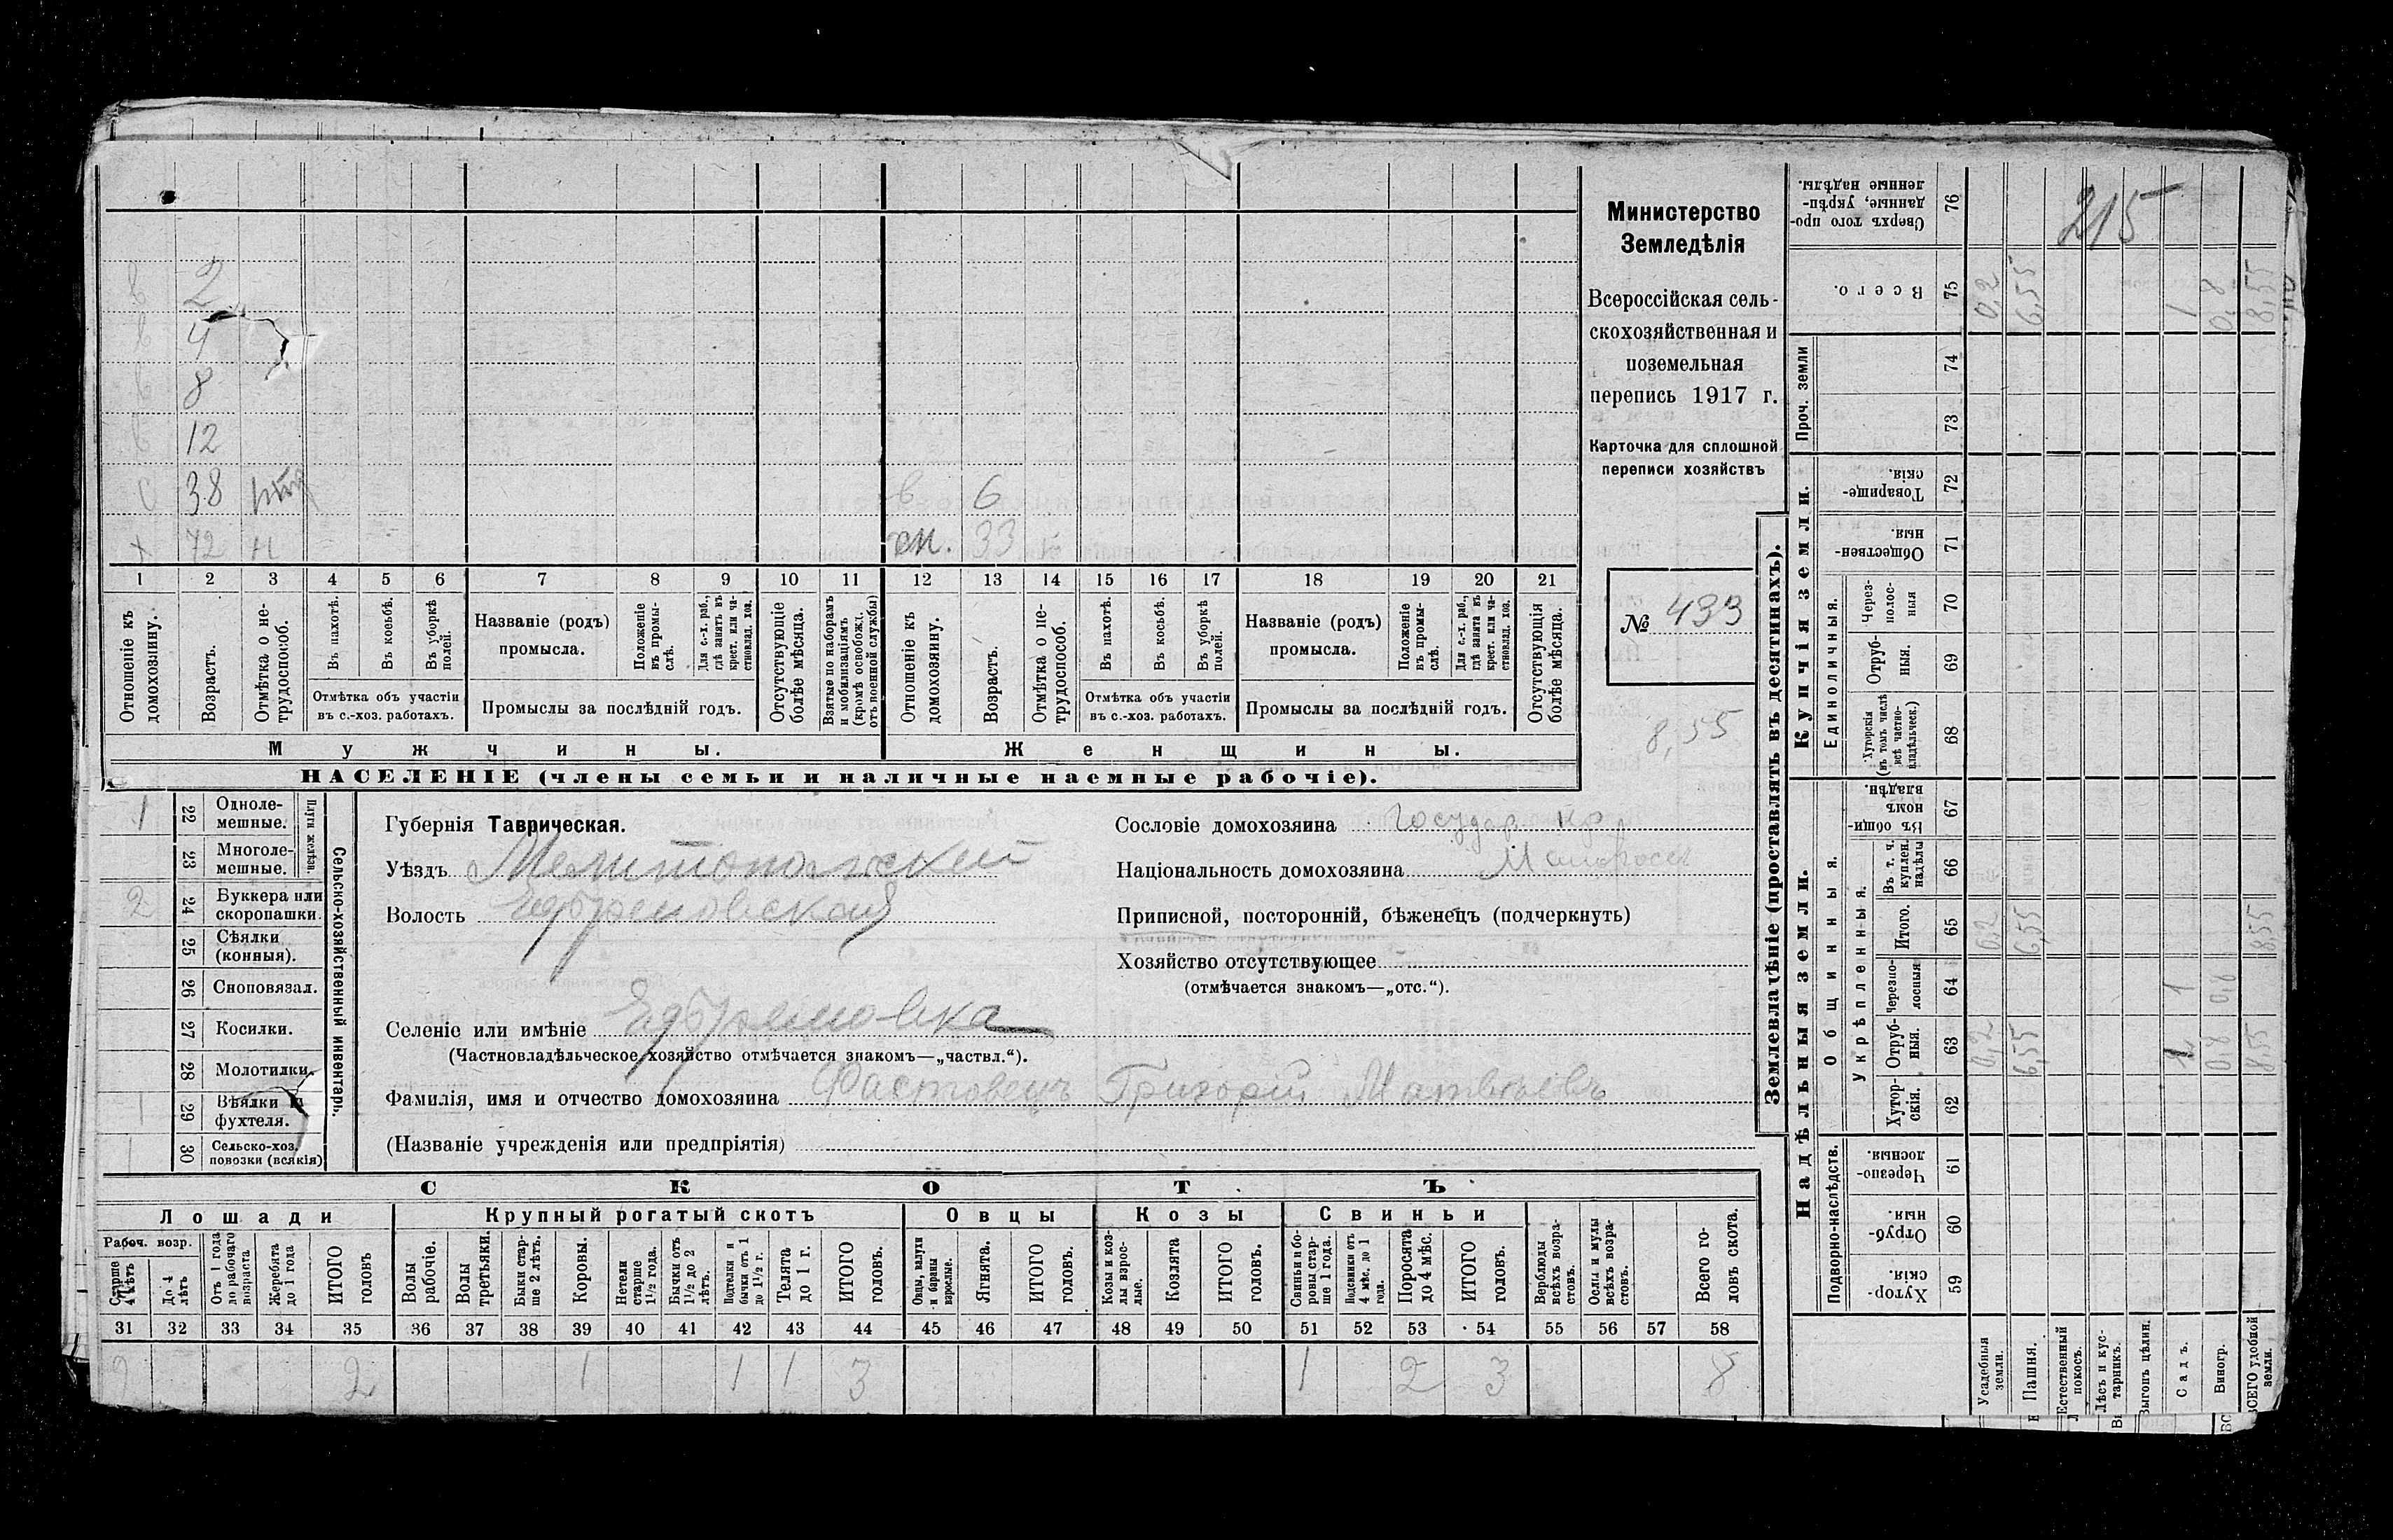 2
4
8
12
с 38
х 72 н
в 6
сн. 33
1 2 3 4 5 6 7 8 9 10 11 12 13 14 15 16 17 18 19 20 21
Отношеніе къ домохозяину.
Возрастъ.
Отмѣтка о нетрудоспособ.
Въ пахотѣ.
Въ косьбѣ.
Въ уборкѣ полей.
Отмѣтка объ участіи
въ с.-хоз. работахъ.
Названіе (родъ)
промысла.
Положеніе въ промыслѣ.
Для с.-х. раб., гдѣ занятъ въ крест. или частновлад. хоз.
Промыслы за послѣдній годъ.
Отсутствующіе болѣе мѣсяца.
Взятые по наборамъ и мобилизаціямъ (кромѣ освобожд. отъ военной службы)
Отношеніе къ домохозяину.
Возрастъ.
Отмѣтка о нетрудоспособ.
Въ пахотѣ.
Въ косьбѣ.
Въ уборкѣ полей.
Отмѣтка объ участіи
въ с.-хоз. работахъ.
Названіе (родъ)
промысла.
Положеніе въ промыслѣ.
Для с.-х. раб., гдѣ занята въ крест. или частновлад. хоз.
Промыслы за послѣдній годъ.
Отсутствующія болѣе мѣсяца.
Мужчины.
Женщины.
НАСЕЛЕНІЕ (члены семьи и наличные наемные рабочіе).
Министерство
Земледѣлія
Всероссійская сель-
скохозяйственная и
поземельная
перепись 1917 г.
Карточка для сплошной
переписи хозяйствъ
№ 433
8,55
1 22 Одноле-
мешные.
23 Многоле-
мешные.
Плуги желѣзн.
2 24 Буккера или
скоропашки.
25 Сѣялки
(конныя).
26 Сноповязал.
27 Косилки.
28 Молотилки.
1 29 Вѣялки и
фухтеля.
1 30 Сельско-хоз.
повозки (всякія)
Сельско-хозяйственный инвентарь.
Губернія Таврическая.
Уѣздъ Мелитопольскій
Волость Ефремовская
Селеніе или имѣніе Ефремовка
(Частновладѣльческое хозяйство отмѣчается знакомъ—„частвл.“).
Фамилія, имя и отчество домохозяина Фастовецъ Григорій Матвѣевъ
(Названіе учрежденія или предпріятія)
Сословіе домохозяина Государ. кр
Національность домохозяина Малоросс
Приписной, посторонній, бѣженецъ (подчеркнуть)
Хозяйство отсутствующее
(отмѣчается знакомъ—„отс.“).
СКОТЪ
Лошади
Крупный рогатый скотъ
Овцы
Козы
Свиньи
Рабоч. возр.
Старше 4 лѣтъ
До 4 лѣтъ
Отъ 1 года до рабочаго возраста
Жеребята до 1 года
ИТОГО головъ
Волы рабочіе.
Волы третьяки.
Быки старше 2 лѣтъ.
Коровы.
Нетели старше 1½ года.
Бычки отъ 1½ до 2 лѣтъ.
Подтелки и бычки отъ 1 до 1½ г.
Телята до 1 г.
ИТОГО головъ.
Овцы, валухи и бараны взрослые.
Ягнята.
ИТОГО головъ.
Козы и козлы взрослые.
Козлята
ИТОГО головъ.
Свиньи и боровы старше 1 года.
Подсвинки отъ 4 мѣс. до 1 года.
Поросята до 4 мѣс.
ИТОГО головъ.
Верблюды всѣхъ возрастовъ.
Ослы и мулы всѣхъ возрастовъ.
Всего головъ скота.
31 32 33 34 35 36 37 38 39 40 41 42 43 44 45 46 47 48 49 50 51 52 53 54 55 56 57 58
2 2 1 1 1 3 1 2 3 8
Землевладѣніе (проставлять въ десятинахъ).
Надѣльныя земли.
Купчія земли.
Проч. земли
Подворно-наслѣдств.
Общинныя.
Укрѣпленныя.
Единоличныя.
Сверхъ того проданные, укрѣпленные надѣлы. 76 215
Всего. 75 0,2 6,55 1 0,8 8,55
74
73
Товарищескія. 72
Общественныя. 71
Черезполосныя 70
Отрубныя. 69
Хуторскія (въ томъ числѣ всѣ частновладѣльческ.) 68
Въ общинномъ владѣн. 67
Въ т. ч. куплен. надѣлы 66
Итого. 65 0,2 6,55 8,55
Черезполосныя 64 1 0,8
Отрубныя. 63 0,2 6,55 1 0,8 8,55
Хуторскія. 62
Черезполосныя. 61
Отрубныя. 60
Хуторскія. 59
Усадебныя земли.
Пашня.
Естественный покосъ.
Лѣсъ и кустарникъ.
Выгонъ цѣлин.
Садъ.
Виногр.
ВСЕГО удобной земли.